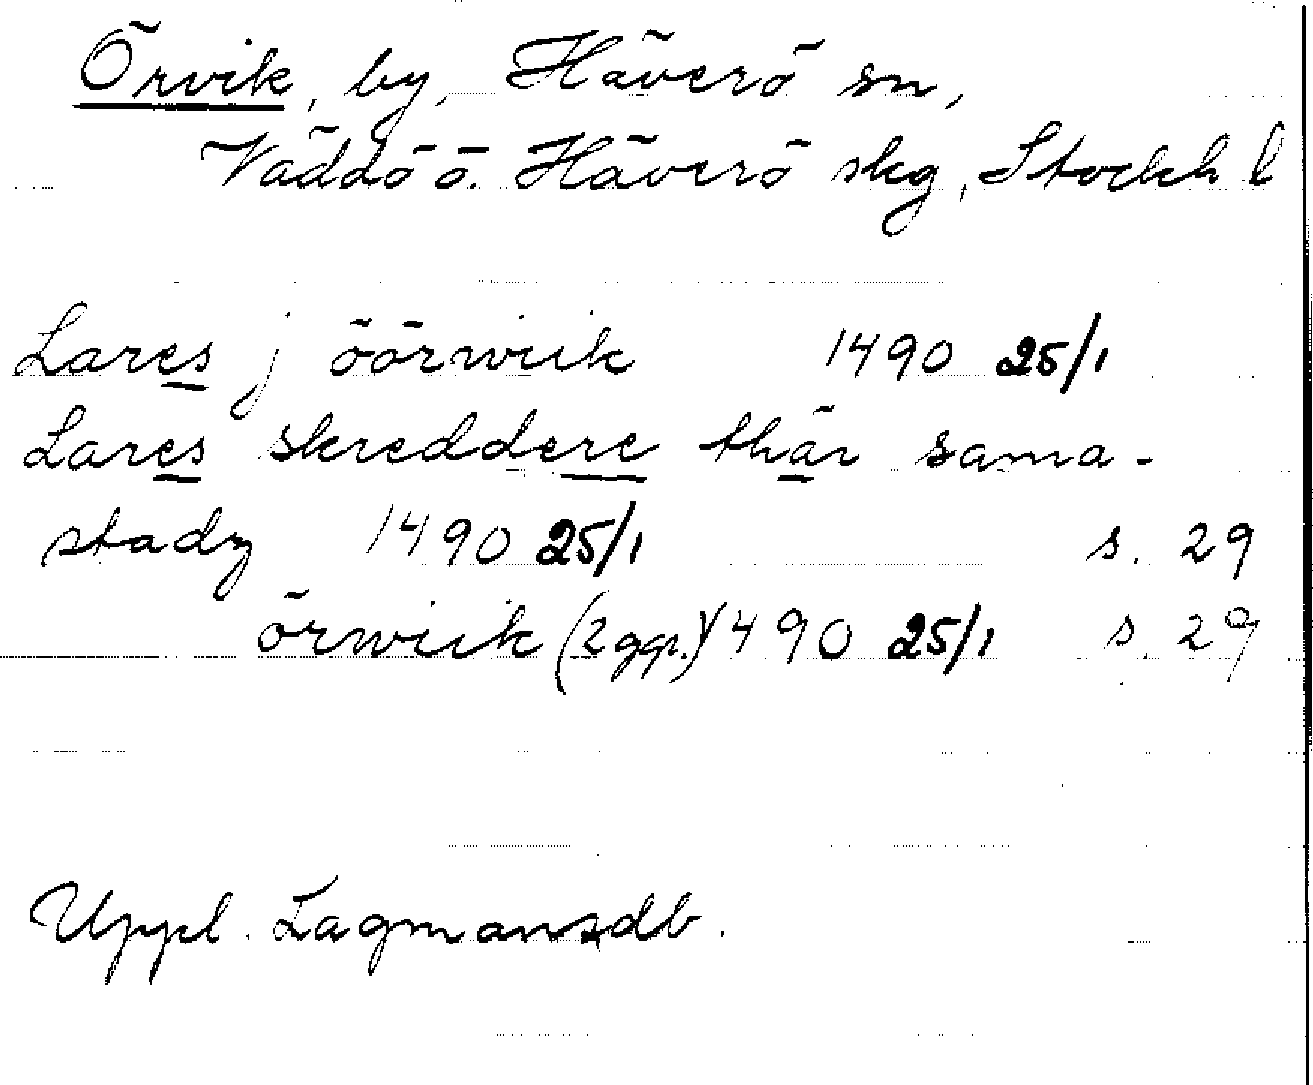 Örvik, by, Häverö sn,
Väddö ö. Häverö skg, Stockh l
Lares j öörwiik 1490 25/1
Lares skreddere thär sama-
stadz 1490 25/1 s. 29
örwiik (2 ggr.) 1490 25/1 s. 29
Uppl. Lagmansdb.